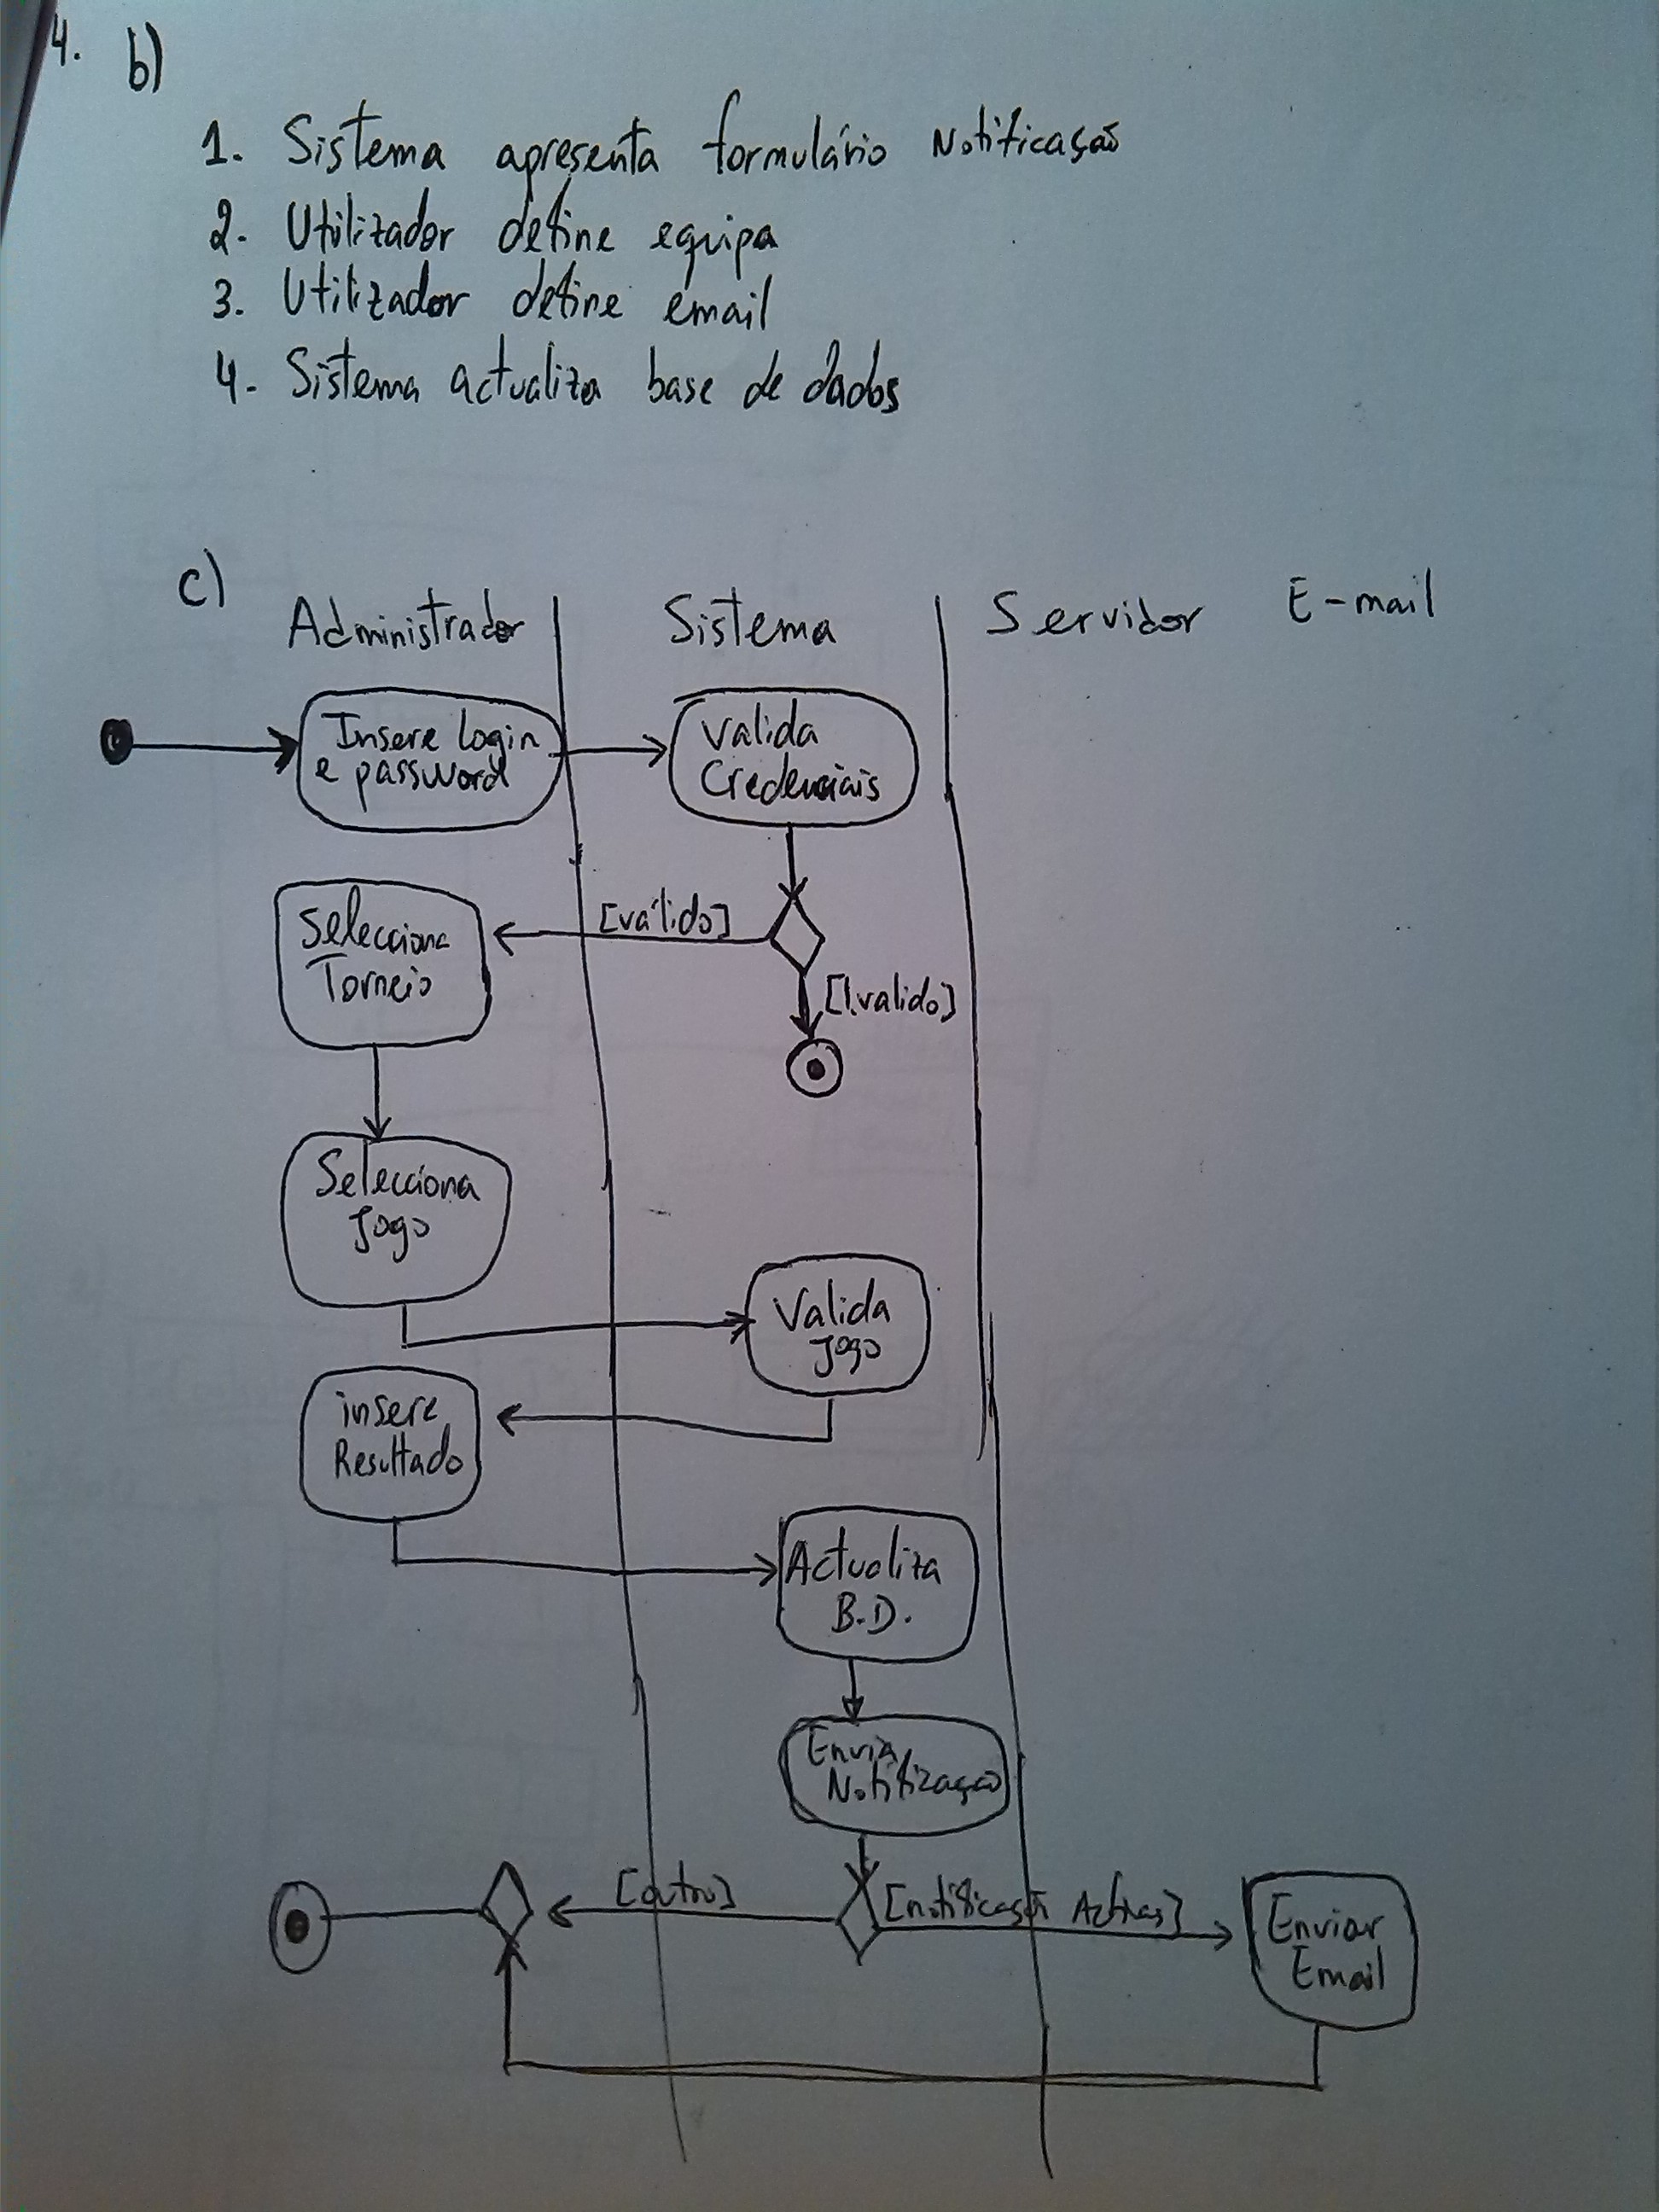 4. b)
1. Sistema apresenta formulário Notificação
2. Utilizador define equipa
3. Utilizador define email
4. Sistema actualiza base de dados
c)
Administrador Sistema Servidor E-mail
Insere login
e password
Valida
Credenciais
[válido]
Selecciona
Torneio
[!valido]
Selecciona
Jogo
Valida
Jogo
insere
Resultado
Actualiza
B.D.
Envia
Notificação
[outro]
[notificação Activas]
Enviar
Email